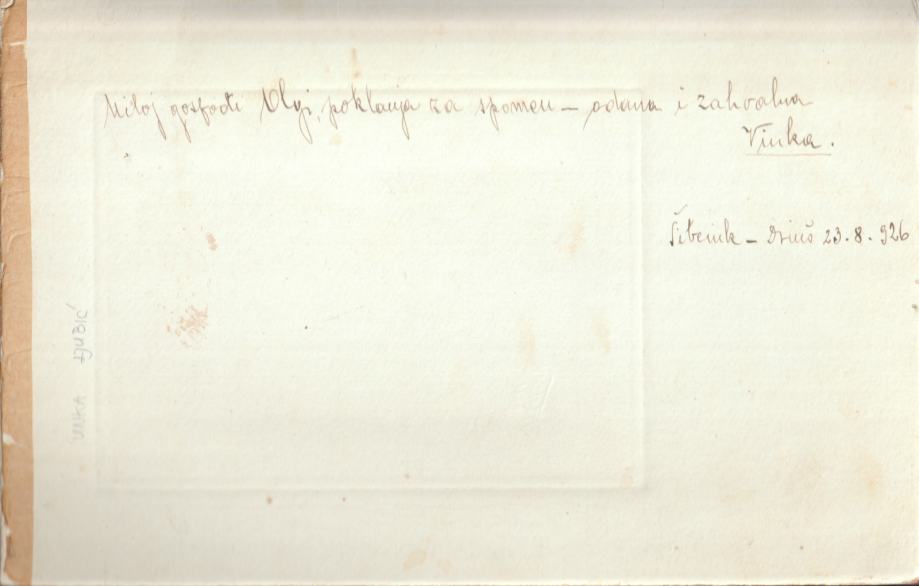 Miloj gospođi Olgi, poklanja za spomen – odana i zahvalna
Vinka.
Šibenik – Drniš 23.8.926
VINKA LJUBIĆ